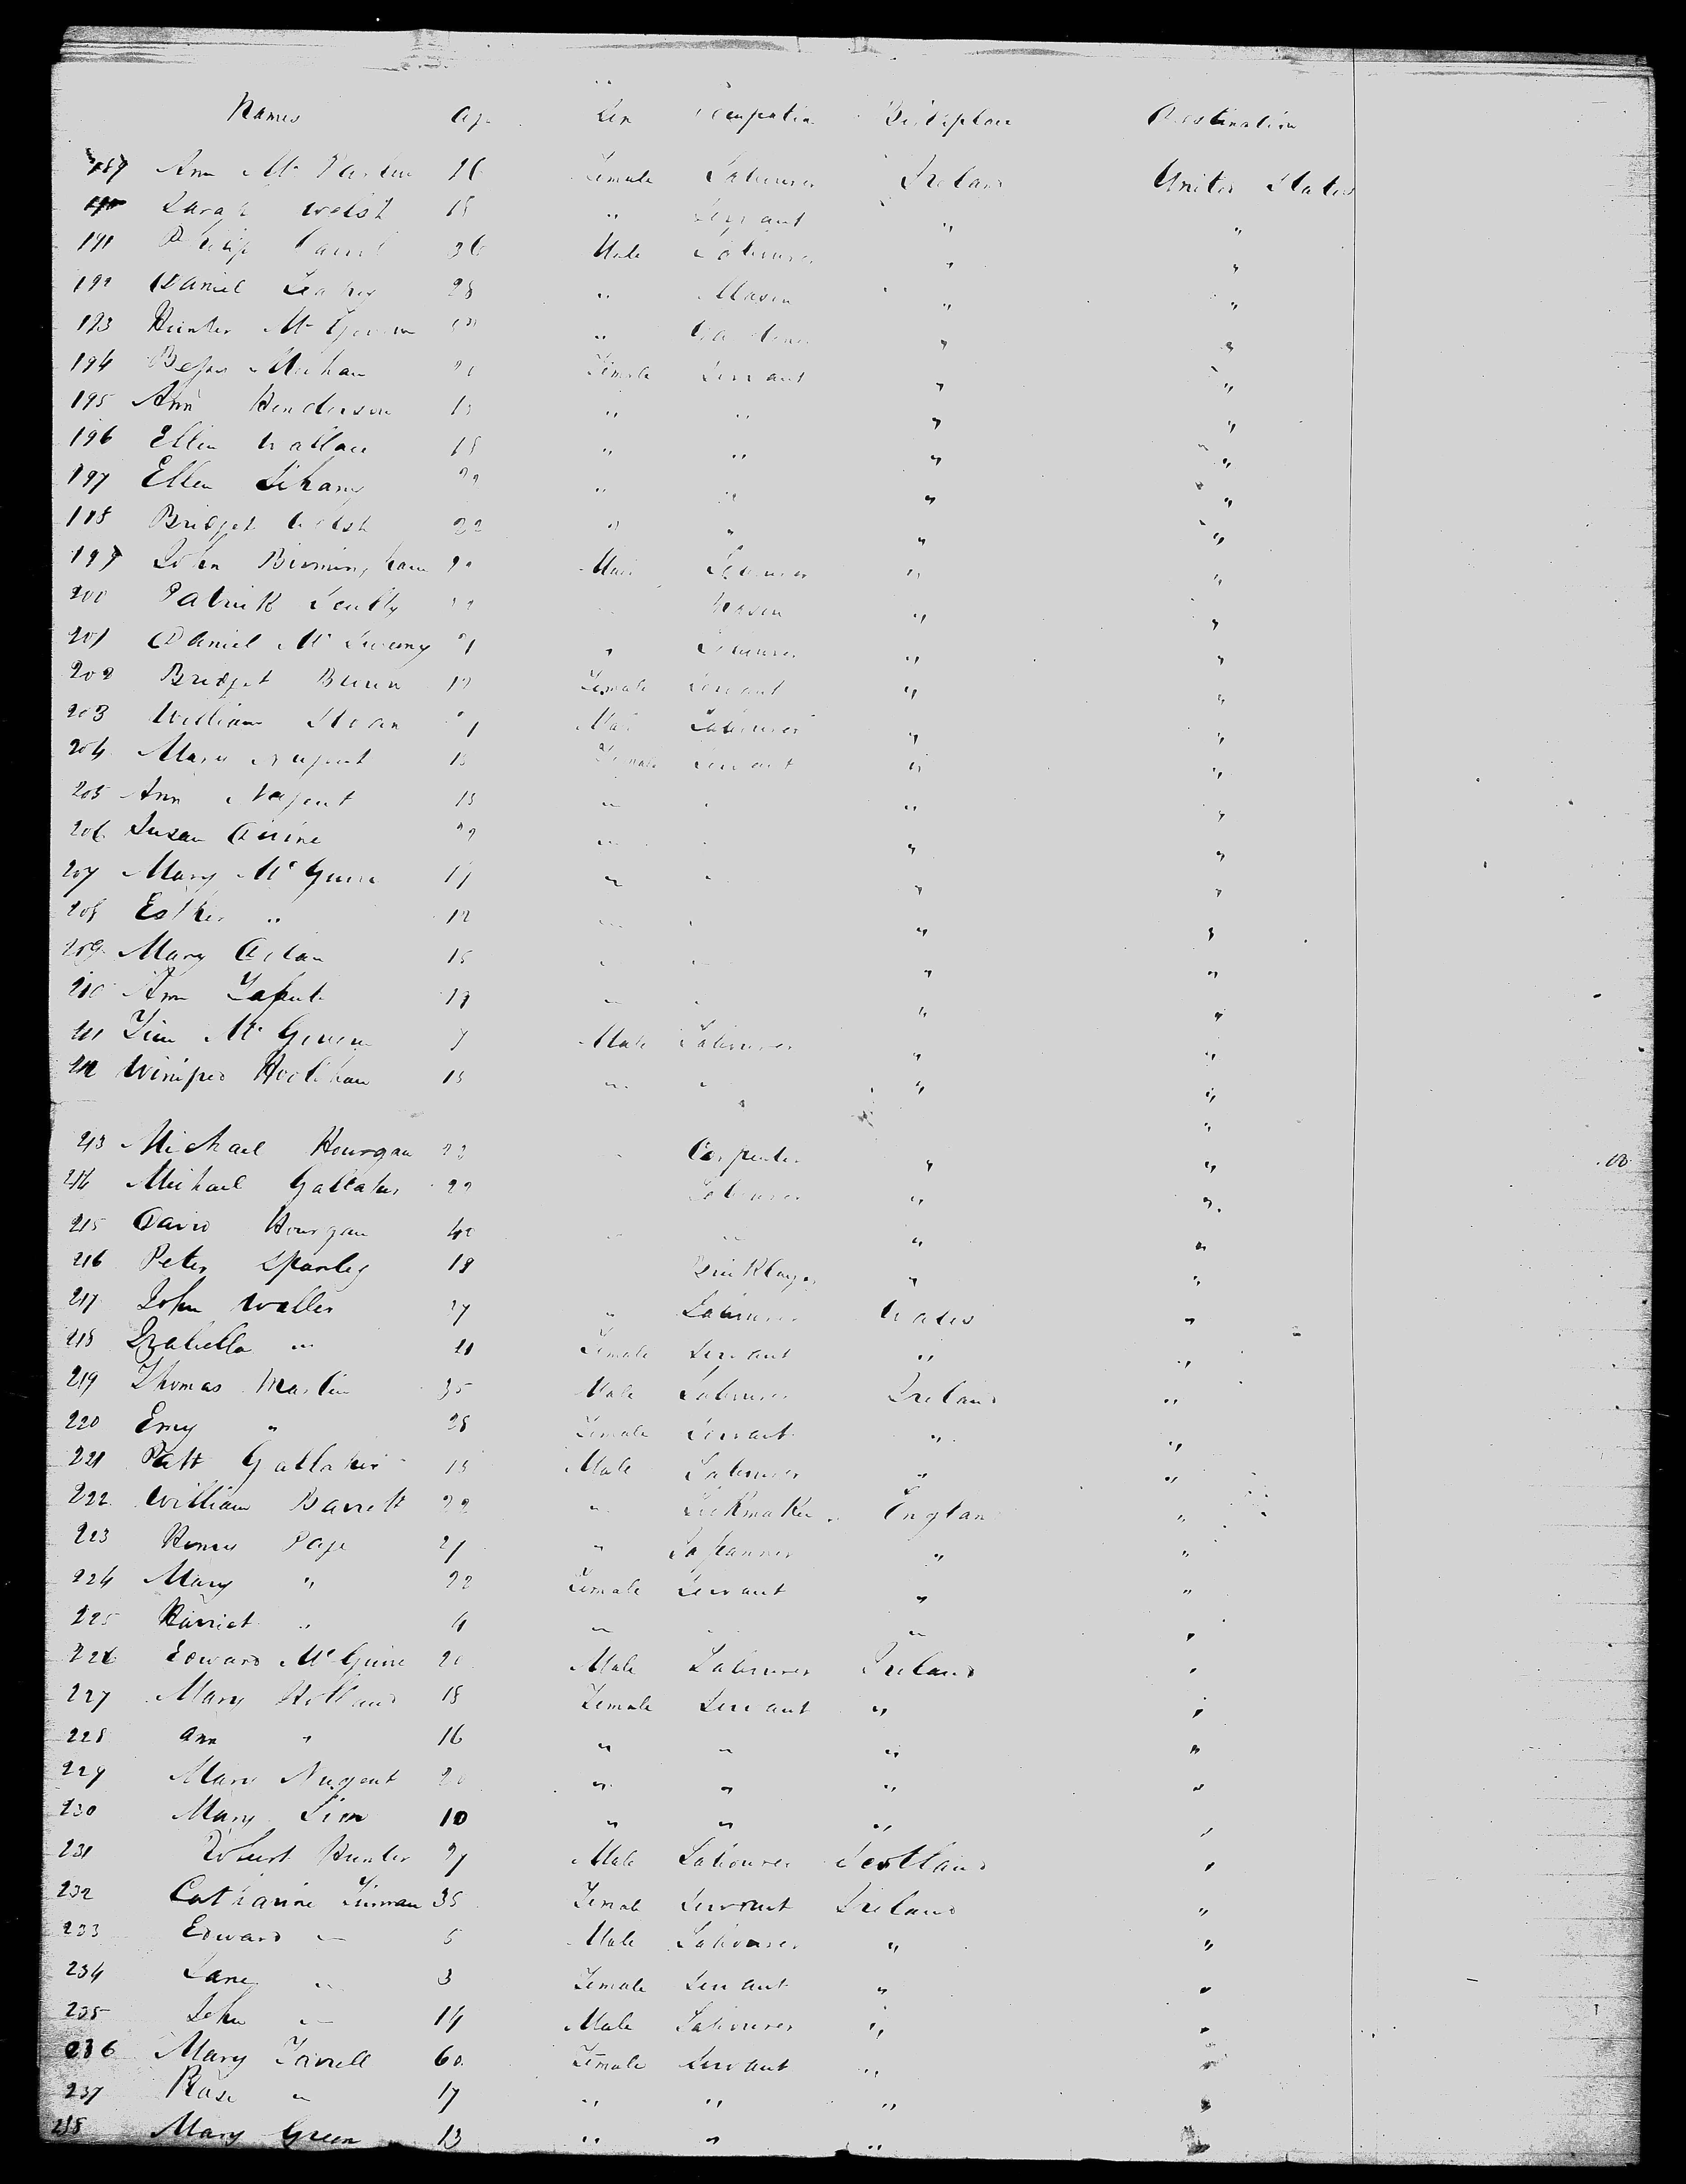 Names Age Sex Occupation Birthplace Destination
189 Ann Mc Parlin 26 Female Labourer Ireland United States
190 Sarah Welsh 18 " Servant " "
191 Philip 36 Male Labourer " "
192 Daniel Leahy 28 " Mason " "
193 Hunter Mc Govern " Gardener " "
194 Bessy Meehan Female Servant " "
195 Ann Henderson " " " "
196 Ellen Wallace 18 " " " "
197 Ellen " " " "
198 Bridget Welsh 22 " " " "
199 John Birmingham Male Labourer " "
200 Patrick Scully Mason " "
201 Daniel Mc Sweeny 21 " Labourer " "
202 Bridget Burn Female Servant " "
203 William Sloan 21 Male Labourer " "
204 Mary Nugent 18 Female Servant " "
205 Ann Nugent 18 " " " "
206 Susan " " " "
207 Mary Mc Guire " " " "
208 Esther " 12 " " " "
209 Mary " " " "
210 Ann " " " "
211 Mc Govern 7 Male Labourer " "
212 Winifred Hoolihan 18 " " " "
213 Michael Hourgan 23 " Carpenter " "
214 Michael Gallaher 22 Labourer " "
215 David Hourgan 40 " " " "
216 Peter Sparley 18 Bricklayer " "
217 John Waller 27 " Labourer Wales "
218 Izabella " 21 Female Servant " "
219 Thomas Martin 35 Male Labourer Ireland "
220 Emy " 28 Female Servant " "
221 Patt Gallaher 18 Male Labourer " "
222 William Barrett 22 " Lockmaker England "
223 Henry Page 21 " Japanner " "
224 Mary " 22 Female Servant " "
225 Harriet " " " " "
226 Edward Mc Guire 20 Male Labourer Ireland "
227 Mary Holland 18 Female Servant " "
228 Ann " 16 " " " "
229 Mary Nugent 20 " " " "
230 Mary 10 " " " "
231 Robert Hunter 27 Male Labourer Scotland "
232 Catharine 35 Female Servant Ireland "
233 Edward " 5 Male Labourer " "
234 Jane " 3 Female Servant " "
235 John " 14 Male Labourer " "
236 Mary Farrell 60 Female Servant " "
237 Rose " 17 " " " "
238 Mary Green 13 " " " "